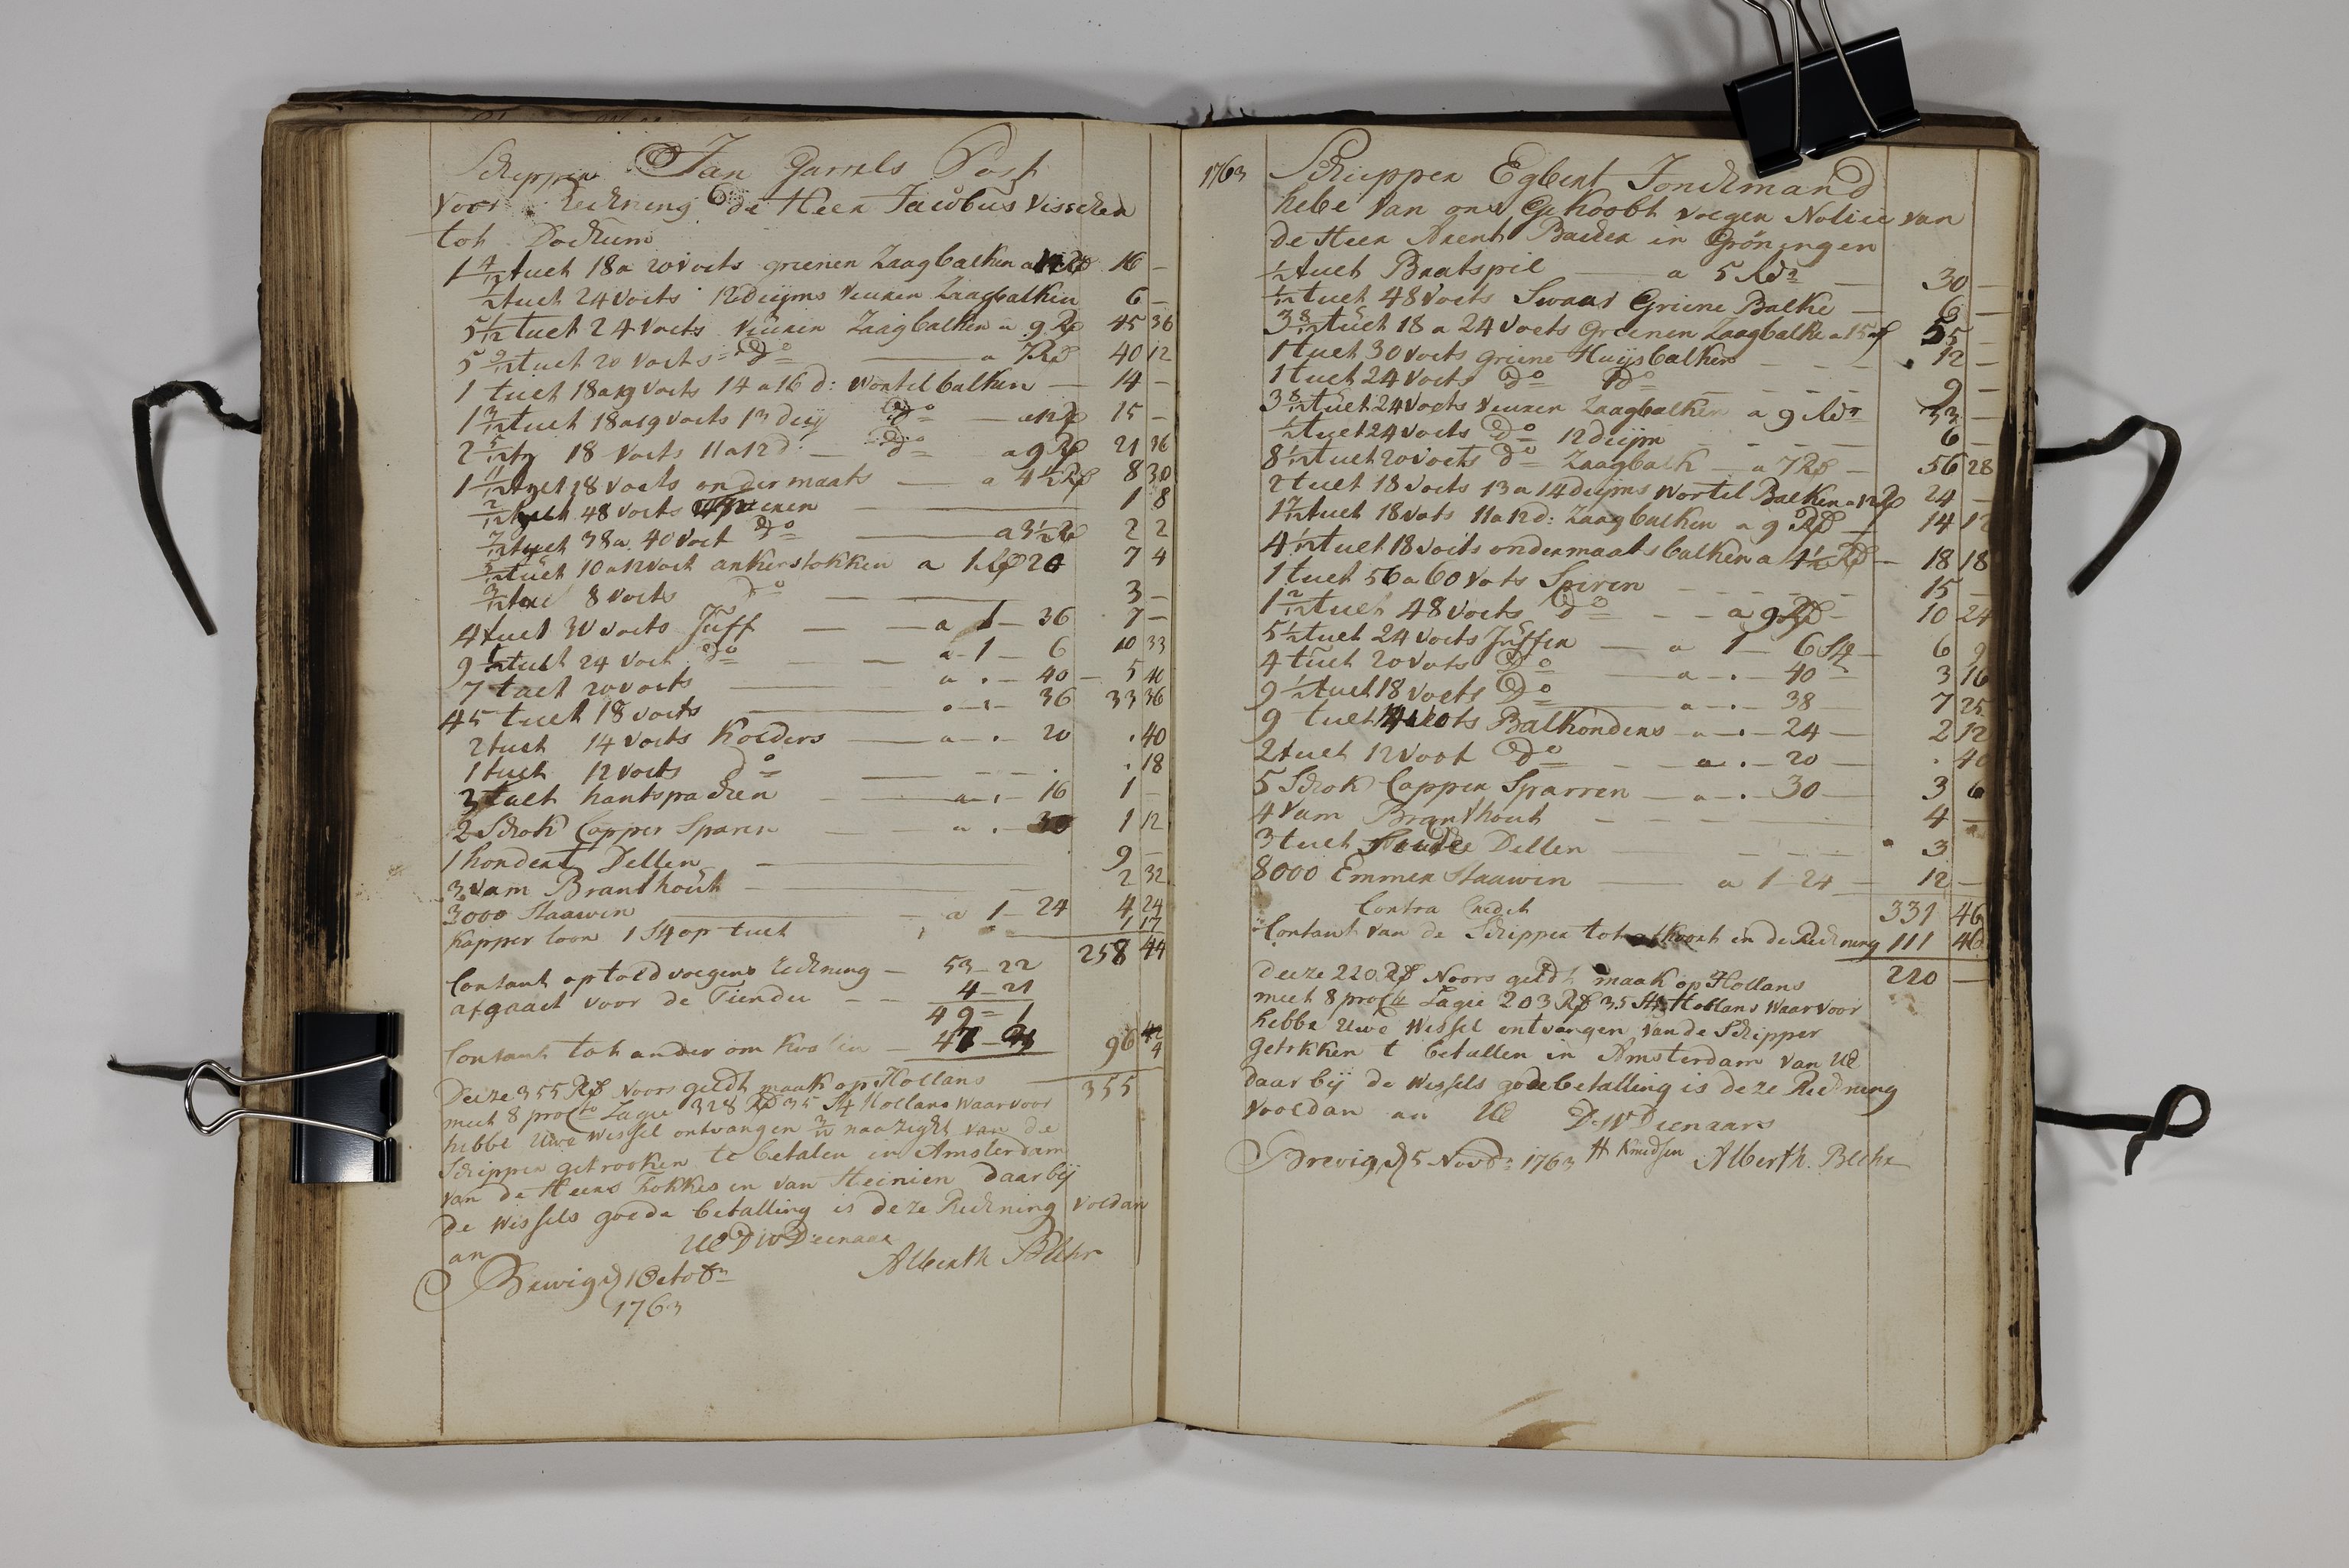 Schipper Jan Garrels Post
voor Rechning de Heer Jacobus Visscher
toh Dockum
1 4/12 tuelt 18 a 20 voets grienen Zaagbalken a 12 Rd 16 —
1/2 tuelt 24 voets 12 duijms vuuren Zaagbalken 6 —
5 1/12 tuelt 24 voets vuuren Zaagbalken a 9 Rd 45 36
5 9/12 tuelt 20 voets Do — a 7 Rd 40 12
1 tuelt 18 a 19 voets 14 a 16 d: wortelbalken — 14 —
1 3/12 tuelt 18 a 19 voets 13 duij Do — a 12 Rd 15 —
2 5/12 18 voets 11 a 12 d: — do — a 9 Rd 21 36
1 11/12 tuelt 18 voets ondermaats — a 4 1/2 Rd 8 30
2/12 tuelt 48 voets — 1 8
7/12 tuelt 38 a 40 voet Do — a 3 1/2 Rd 2 2
5/12 tuelt 10 a 12 voet ankerstokken a 1 Rd 24 7 4
3/12 8 voets do — 3 —
4 tuelt 30 voets Juff — a 1 — 36 7 —
9 1/2 tuelt 24 voet Do — a 1 — 6 10 33
7 tuelt 20 voets — a . — 40 — 5 40
45 tuelt 18 voets — a . — 36 33 36
2 tuelt 14 voets Kolders — a . 20 . 40
1 tuelt 12 voets do — . 18
3 tuelt hantspacken — a . — 16 1 —
2 Schok Capper Sparen — a . — 30 1 12
1 hondert Dellen — 9 —
3 vam Branthout — 2 32
3000 Staawen — a 1 — 24 4 24
Kapper loon 1 St op tuelt 1 17
258 44
Contant op told volgens rechning — 53 — 22
afgaaet voor de Tiender — 4 — 21
49 = 1
Contant toh ander om Kosten — 47 96 4
Deeze 355 Rd Noors geldt maak op Hollans 355
meet 8 proCto Lagie 328 Rd 35 St Hollans waarvoor
hebbe Uwe Wissel ontvangen naa zight van de
Schipper getrocken te betalen in Amsterdam
van de Heers en van Heinien daar bij
de Wissels goede betalling is deze Rechning voldan
an UE DW Dienaar
Brevig d 1 Octobr Alberth Blehr
1763
1763 Schipper Egbert Jonckmand
hebe van ons Gekoobt volgen Notice van
de Heer Arent Backer in Gröningen
1/2 tuelt Braatspil — a 5 Rdr — 30 —
1/12 tuelt 48 voets Swaar Griene Balke — 6 —
3 8/12 tuelt 18 a 24 voets Grienen Zaagbalke a 15 55 —
1 tuelt 30 voets griene Huijsbalken — 12 —
1 tuelt 24 voets do Do — 9 —
3 8/12 tuelt 24 voets vuuren Zaagbalken a 9 Rdr 33 —
1/2 tuelt 24 voets Do 12 duijm — 6 —
8 1/12 tuelt 20 voets do Zaagbalk — a 7 Rd — 56 28
2 tuelt 18 voets 13 a 14 duijms Wortel Balken a 12 Rd 24 —
1 7/12 tuelt 18 vots 11 a 12 d: Zaagbalken a 9 Rd — 14 12
4 1/12 tuelt 18 voets ondermaats balken a 4 1/2 Rd — 18 18
1 tuelt 56 a 60 vots Spiren — 15 —
1 2/12 tuelt 48 voets Do — a 9 Rd — 10 24
5 1/2 tuelt 24 voets Juffen — a 1 — 6 St — 6 9
4 tuelt 20 vots Do — a . — 40 — 3 16
9 1/2 tuelt 18 voets Do — a . — 38 7 25
9 tuelt 14 vots Balkonders — a . — 24 — 2 12
2 tuelt 12 voot Do — a . — 20 — . 40
5 Schok Capper Sparren — a . — 30 — 3 6
4 vam Branthout — 4 —
3 tuelt Dellen — 3
8000 Emmer Staawen — a 1 — 24 — 12 —
Contra Credit 331 46
Contant van de Schipper toh in de Rechning 111 46
220 —
Deeze 220 Rd Noors geldt maak op Hollans
meet 8 proCto Lagie 203 Rd 35 St Hollans waarvoor
hebbe Uwe Wissel ontvangen van de Schipper
getrkken t betallen in Amsterdam van UE
daar bij de Wissels godebetalling is deze Rechning
vooldan an UE DW Dienaars
Brevig d 5 Novbr: 1763 H Knudsen Alberth. Blehr